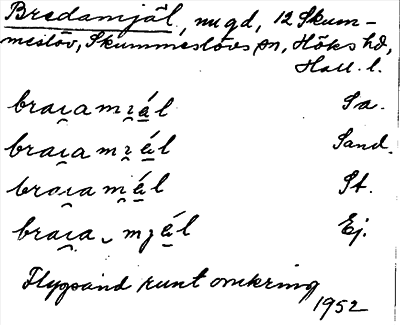 Bredamjäl, nugd, 12 Skum-
meslöv, Skummeslövs sn, Höks hd,
Hall. l.
braɪ̯amɪ̯ä́l Sa.
braɪ̯amɪ̯ä́l Sand.
broɪ̯amä́l St.
braɪ̯a mjä́l Ej.
Flygsand runt omkring
1952